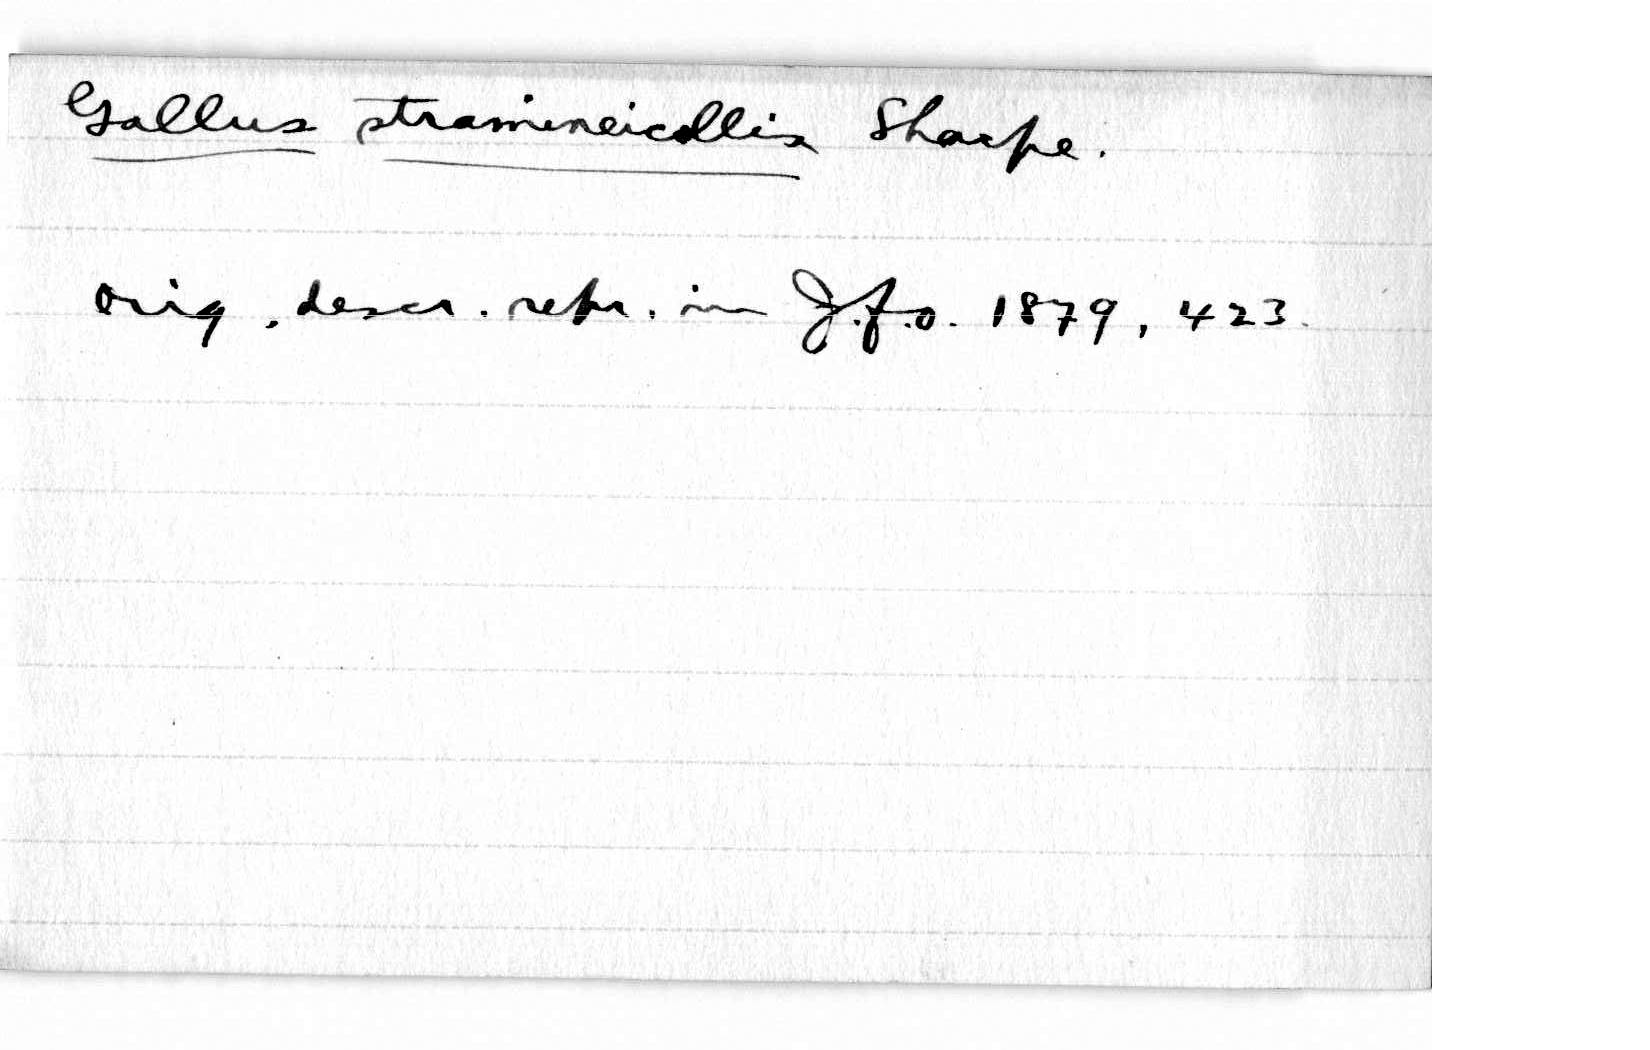 Gallus stramineicollis Sharpe.
Orig. descr. repr. in J.f.O. 1879, 423.